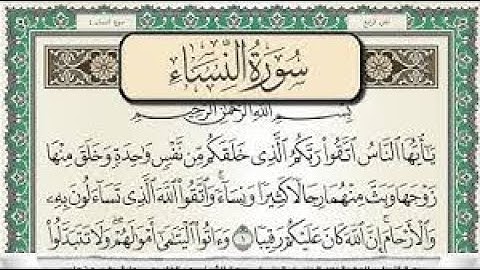 سُورَةُ النِّسَاءِ
بِسْمِ اللَّهِ الرَّحْمَٰنِ الرَّحِيمِ
يَا أَيُّهَا النَّاسُ اتَّقُوا رَبَّكُمُ الَّذِي خَلَقَكُم مِّن نَّفْسٍ وَاحِدَةٍ وَخَلَقَ مِنْهَا
زَوْجَهَا وَبَثَّ مِنْهُمَا رِجَالًا كَثِيرًا وَنِسَاءً ۚ وَاتَّقُوا اللَّهَ الَّذِي تَسَاءَلُونَ بِهِ
وَالْأَرْحَامَ ۚ إِنَّ اللَّهَ كَانَ عَلَيْكُمْ رَقِيبًا ١ وَآتُوا الْيَتَامَىٰ أَمْوَالَهُمْ ۖ وَلَا تَتَبَدَّلُوا